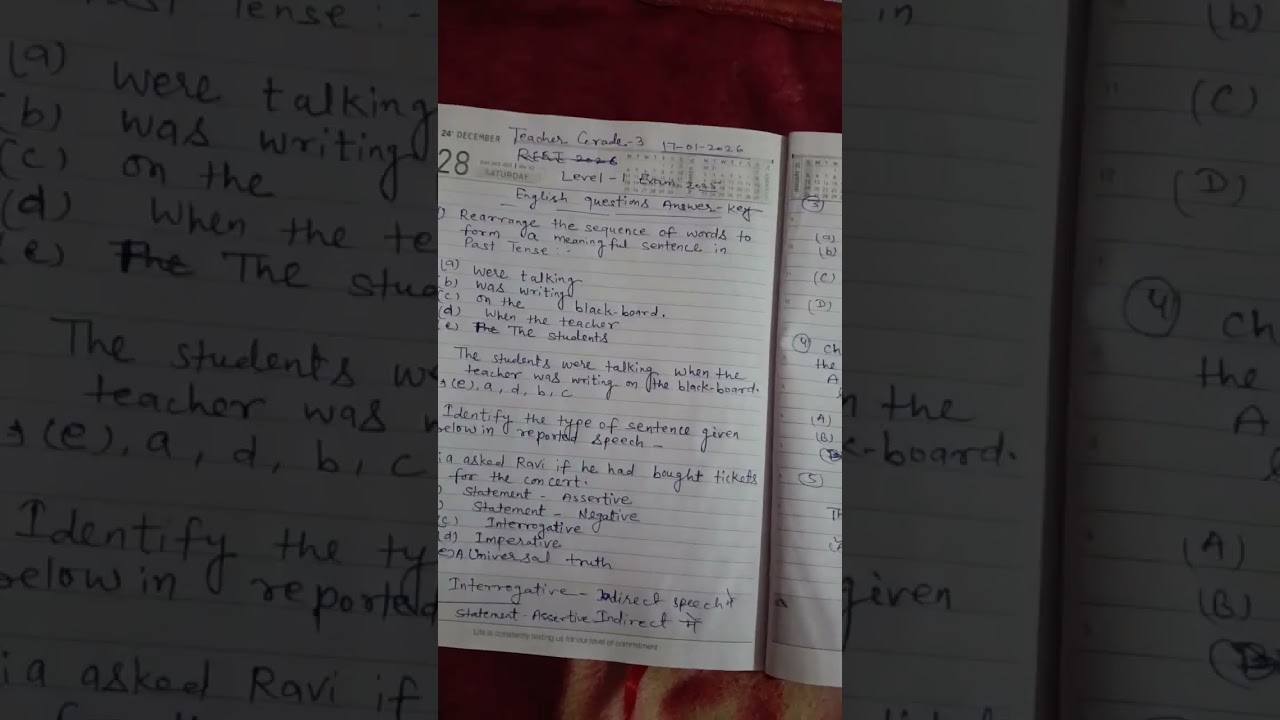 24 DECEMBER
28
SATURDAY
Teacher Grade-3 17-01-2026
REET 2026
Level-1 Exam 2025
English questions Answer-key
Rearrange the sequence of words to
form a meaningful sentence in
Past Tense :-
(a) were talking
(b) was writing
(c) on the black-board.
(d) when the teacher
(e) The The students
The students were talking when the
teacher was writing on the black-board.
(e), a, d, b, c
Identify the type of sentence given
below in reported speech -
ia asked Ravi if he had bought tickets
for the concert.
Statement - Assertive
Statement - Negative
(c) Interrogative
(d) Imperative
(e) A Universal truth
Interrogative - Indirect speech में
Statement - Assertive Indirect में
Life is consistently testing us for our level of commitment
(3)
(a)
(b)
(C)
(D)
(4) Ch
the
A
(A)
(B)
(5)
Th